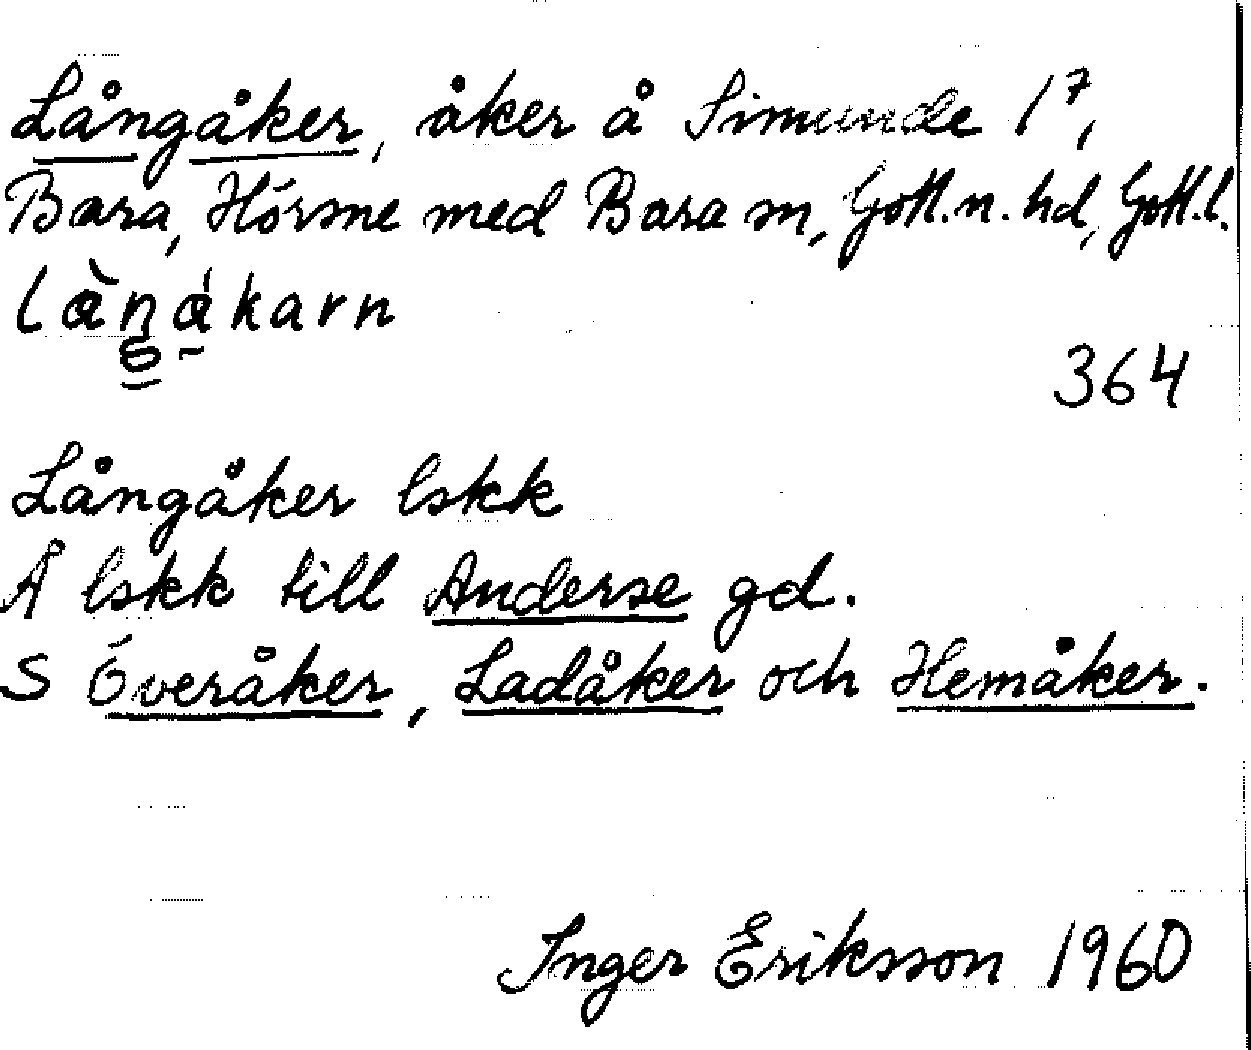 Långåker, åker å Simunde 1⁷,
Bara, Hörsne med Bara sn, Gotl. n. hd, Gotl. l.
là̀ŋákarn
364
Långåker lskk
Å lskk till Anderse gd.
S Överåker, Ladåker och Hemåker.
Inger Eriksson 1960